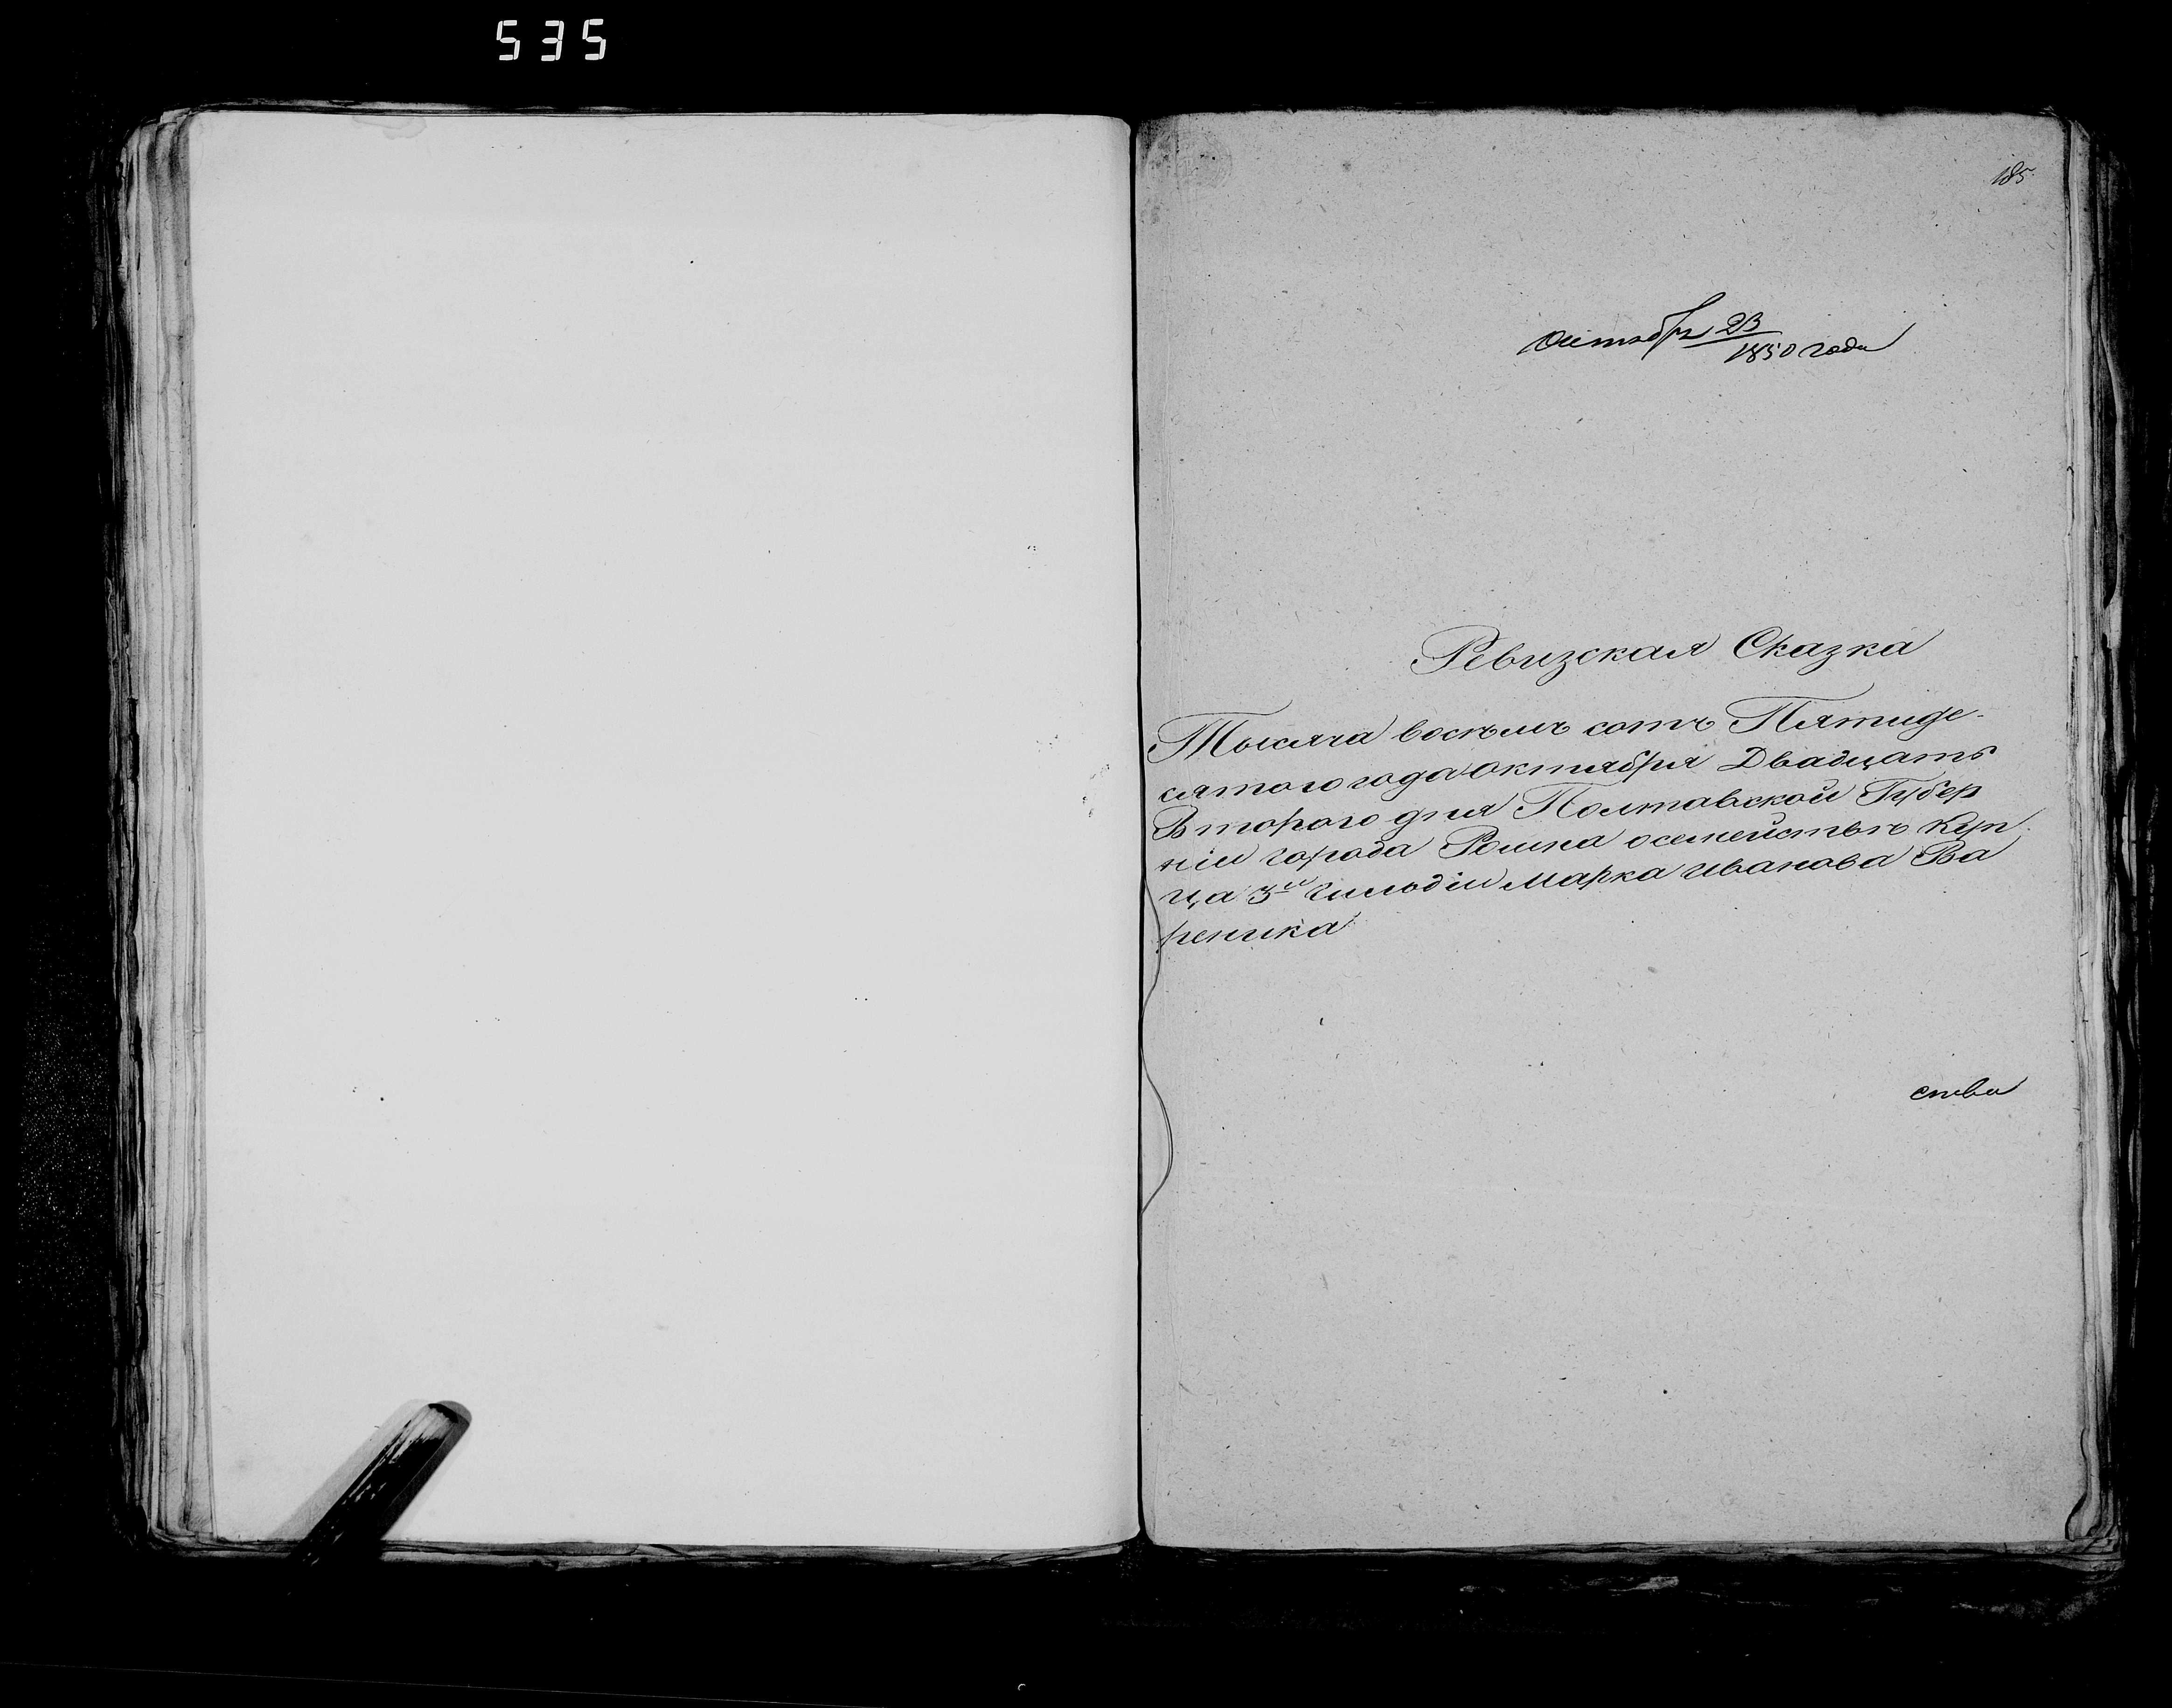 535
185
октября 23
1850 года
Ревизская Сказка
Тысяча восемь сотъ Пятиде-
сятого года октября Двадцать
Второго дня Полтавской Губер
ніи города Ромна о семействѣ Куп
ца 3й Гильдіи Марка Иванова Ва
реника